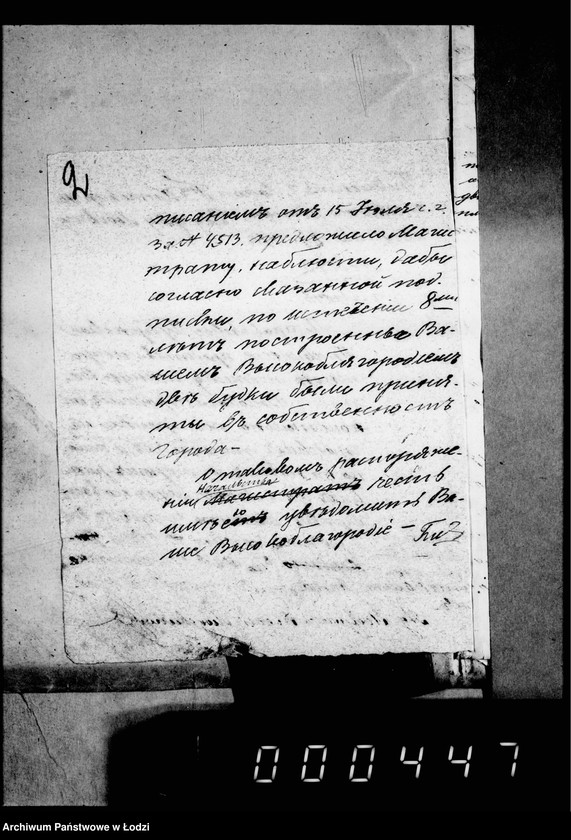 2
писаніемъ отъ 15 Іюля с. г.
за № 4513. предложило Маги
страту, наблюсти, дабы
согласно сказанной под.
писки, по истеченіи 8ми
лѣтъ построенныя Ва-
шемъ Высокоблагородіемъ
двѣ будки были приня-
ты въ собственность
города-
О таковомъ распоряже-
Начальства
ніи Магистратъ честь
имѣю увѣдомить Ва-
ше Высокоблагородіе –
000447
Archiwum Państwowe w Łodzi